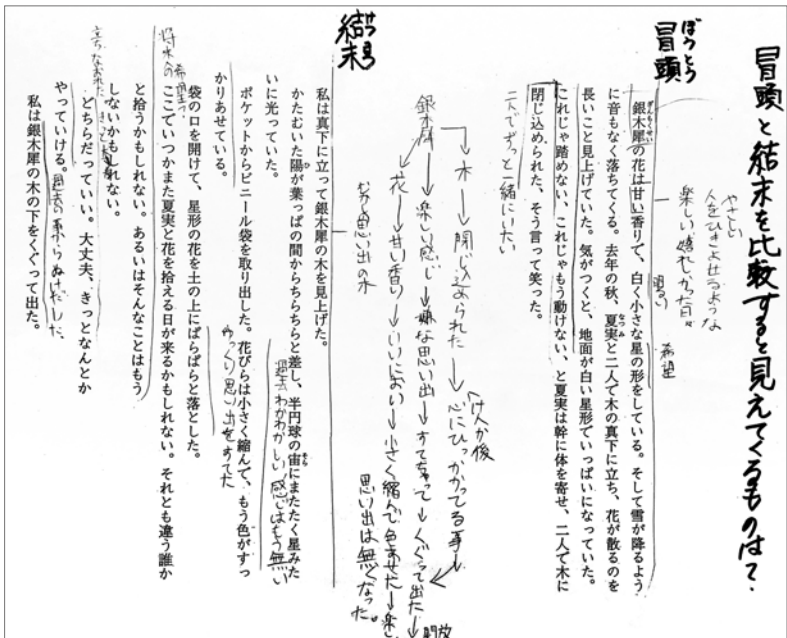 冒頭と結末を比較すると見えてくるものは?
ぼうとう
冒頭
やさしい
人をひきよせるような
楽しい嬉しかった日々
明るい
希望
銀木犀の花は甘い香りで、白く小さな星の形をしている。そして雪が降るよう
に音もなく落ちてくる。去年の秋、夏実と二人で木の真下に立ち、花が散るのを
長いこと見上げていた。気がつくと、地面が白い星形でいっぱいになっていた。
これじゃ踏めない、これじゃもう動けない、と夏実は幹に体を寄せ、二人で木に
閉じ込められた、そう言って笑った。
二人でずっと一緒にいたい
銀木犀
木→閉じ込められた→心にひっかかってる事
けんか後
楽しい感じ→嫌な思い出→すてちゃって→くぐって出た→開放
花→甘い香り→いいにおい→小さく縮んで色あせた→楽し
思い出は無くなった。
思い出の木
結末
私は真下に立って銀木犀の木を見上げた。
かたむいた陽が葉っぱの間からちらちらと差し、半円球の宙にまたたく星みた
いに光っていた。
過去わかわかしい感じはもう無い
ポケットからビニール袋を取り出した。花びらは小さく縮んで、もう色がすっ
かりあせている。
ゆっくり思い出をすてた
袋の口を開けて、星形の花を土の上にぱらぱらと落とした。
ここでいつかまた夏実と花を拾える日が来るかもしれない。それとも違う誰か
と拾うかもしれない。あるいはそんなことはもう
しないかもしれない。
将来の希望
どちらだっていい。大丈夫、きっとなんとか
やっていける。
立ちなおれた
過去の事からぬけだした
私は銀木犀の木の下をくぐって出た。